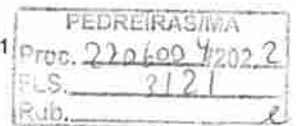 1
PEDREIRAS/MA
Proc. 2206004/2022
FLS. 2121
Rub.